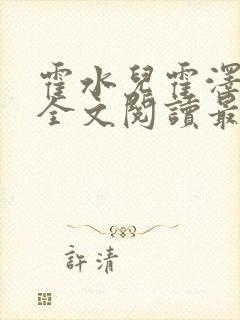 霍水兒霍澤
全文閱讀最
許清